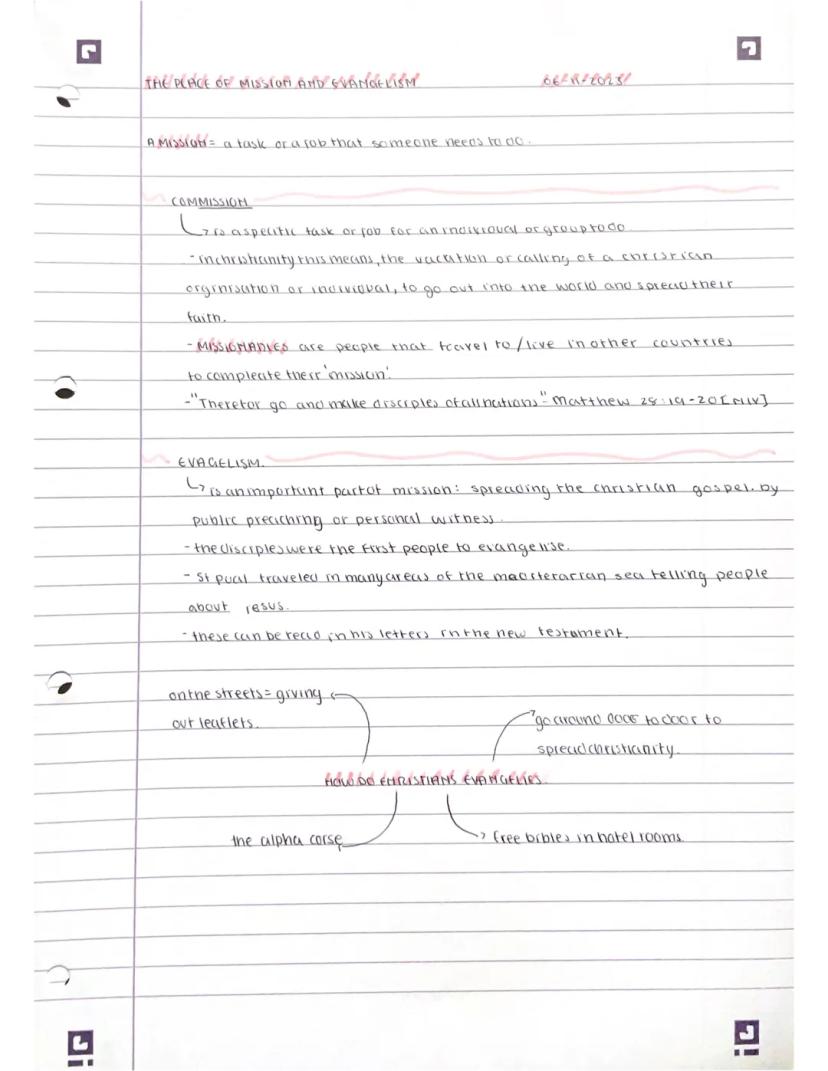 THE PLACE OF MISSION AND EVANGELISM
A MISSION = a task or a job that someone needs to do.
COMMISSION
is a specific task or job for an individual or group to do
- in christianity this means, the vacation or calling of a christian
orgnisation or individual, to go out into the world and spread their
faith.
- MISSIONARIES are people that travel to / live in other countries
to compleate their 'mission'.
- "Therefor go and make disciples of all nations" - Matthew 28:19-20 [NIV]
EVAGELISM.
is an important part of mission: spreading the christian gospel. by
public preaching or personal witness.
- the disciples were the first people to evangelise.
- St paul traveled in many areas of the sea telling people
about jesus.
- these can be read in his letters in the new testament.
on the streets = giving
out leaflets.
go around door to door to
spread christianity.
HOW DO CHRISTIANS EVANGELIES.
the alpha corse
free bibles in hotel rooms.